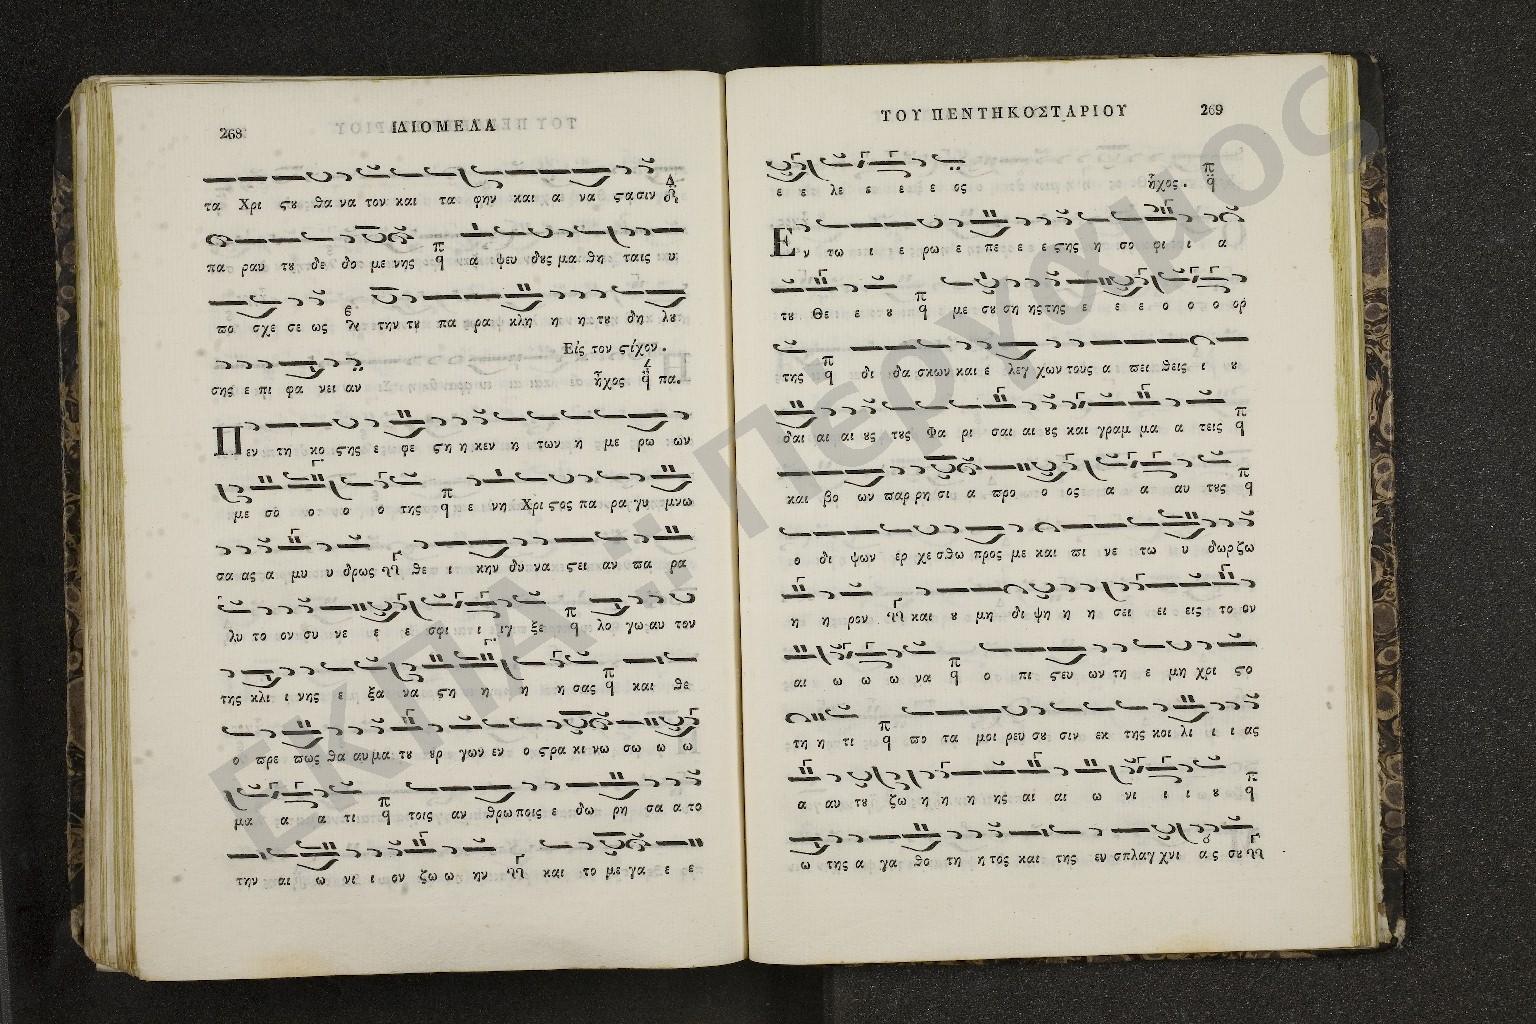 268
ΙΔΙΟΜΕΛΑ
τα Χρι ϛου θα να τον και τα φην και α να ϛασιν
πα ραυ τυ δε δο με νης α ψευ δυς μα θη ταις υ
πο σχε σε ως την τυ πα ρα κλη η η τυ δη λυ
Εἰς τον ϛίχον.
σης ε πι φα νει αν ἦχος πα.
Πεν τη κο ϛης ε φε ϛη η κεν η των η με ρω ων
με σο ο ο ο της ε νη Χρι ϛος πα ρα γυ μνω
σα ας α μυ υ δρως θε ι κην δυ να ϛει αν πα ρα
λυ το ον συ νε ε ε σφι ι ιγ ξε λο γω αυ τον
της κλι ι νης ε ξα να ϛη η η η σας και θε
ο πρε πως θα αυ μα τυ υρ γων εν ο ϛρα κι νω σω ω ω
μα α α τι τοις αν θρωποις ε δω ρη σα α το
την αι ω νι ι ον ζω ω ην και το με γα ε ε
ΤΟΥ ΠΕΝΤΗΚΟΣΤΑΡΙΟΥ
269
ε ε λε ε ε ε ος ἦχος.
Εν τω ι ε ρω ε πε ε ε ϛης η σο φι ι α
τυ Θε ε υ με συ ση ης της ε ε ε ο ο ο ορ
της δι δα σκων και ε λεγ χων τους α πει θεις ι υ
δαι αι αι υς τυς Φα ρι σαι αι υς και γραμ μα α τεις
και βο ων παρ ρη σι α προ ο ος α α αυ τυς
ο δι ψων ερ χε σθω προς με και πι νε τω υ δωρ ζω
η η ρον και υ μη δι ψη η η σει ει εις το ον
αι ω ω ω να ο πι ϛευ ων τη ε μη χρι ϛο
τη η τι πο τα μοι ρευ συ σιν εκ της κοι λι ι ι ας
α αυ τυ ζω η η η ης αι αι ω νι ι ι υ
ω της α γα θο τη η τος και της ευ σπλαγ χνι ας συ
ΕΚΠΑ :: Πέργαμος